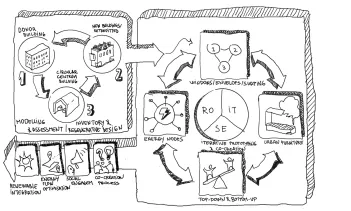 DONOR
BUILDING
NEW BUILDING/
RETROFITTING
1
2
CIRCULAR
CENTRUM
BUILDING
3
MODELLING
& ASSESSMENT
INVENTORY &
REGENERATIVE DESIGN
RENEWABLE
INTEGRATION
ENERGY
FLOW
OPTIMISATION
SOCIAL
ENGAGEM.
CO-CREATION
PROCESS
1
2
3
WINDOWS/ENVELOPES/
ENERGY NODES
RO
IT
SE
ITERATIVE PROTOTYPING
& CO-CREATION
URBAN FURNITURE
TOP-DOWN & BOTTOM-UP